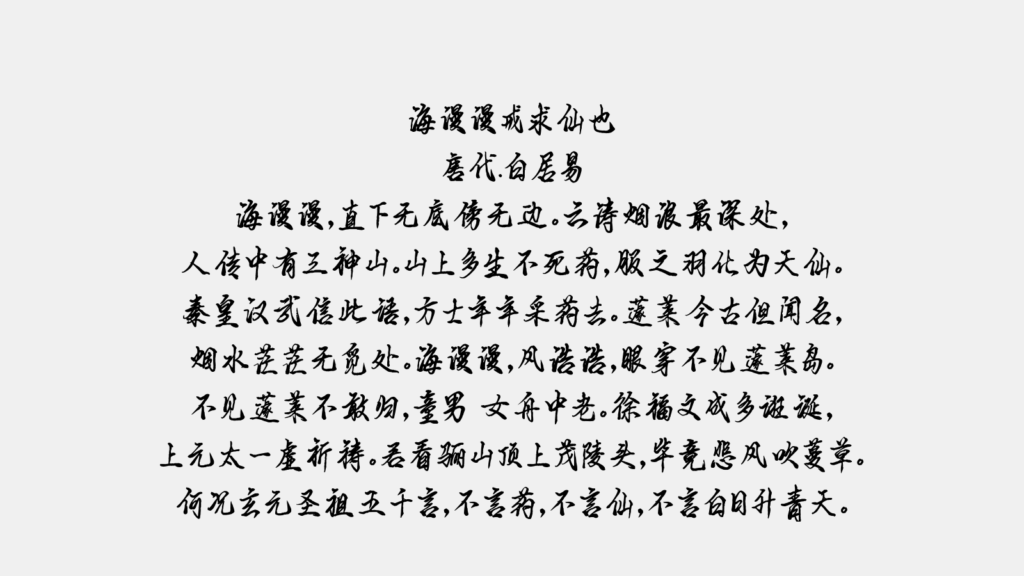 海漫漫戒求仙也
唐代.白居易
海漫漫,直下无底傍无边。云涛烟浪最深处,
人传中有三神山。山上多生不死药,服之羽化为天仙。
秦皇汉武信此语,方士年年采药去。蓬莱今古但闻名,
烟水茫茫无觅处。海漫漫,风浩浩,眼穿不见蓬莱岛。
不见蓬莱不敢归,童男 女舟中老。徐福文成多诳诞,
上元太一虚祈祷。君看骊山顶上茂陵头,毕竟悲风吹蔓草。
何况玄元圣祖五千言,不言药,不言仙,不言白日升青天。